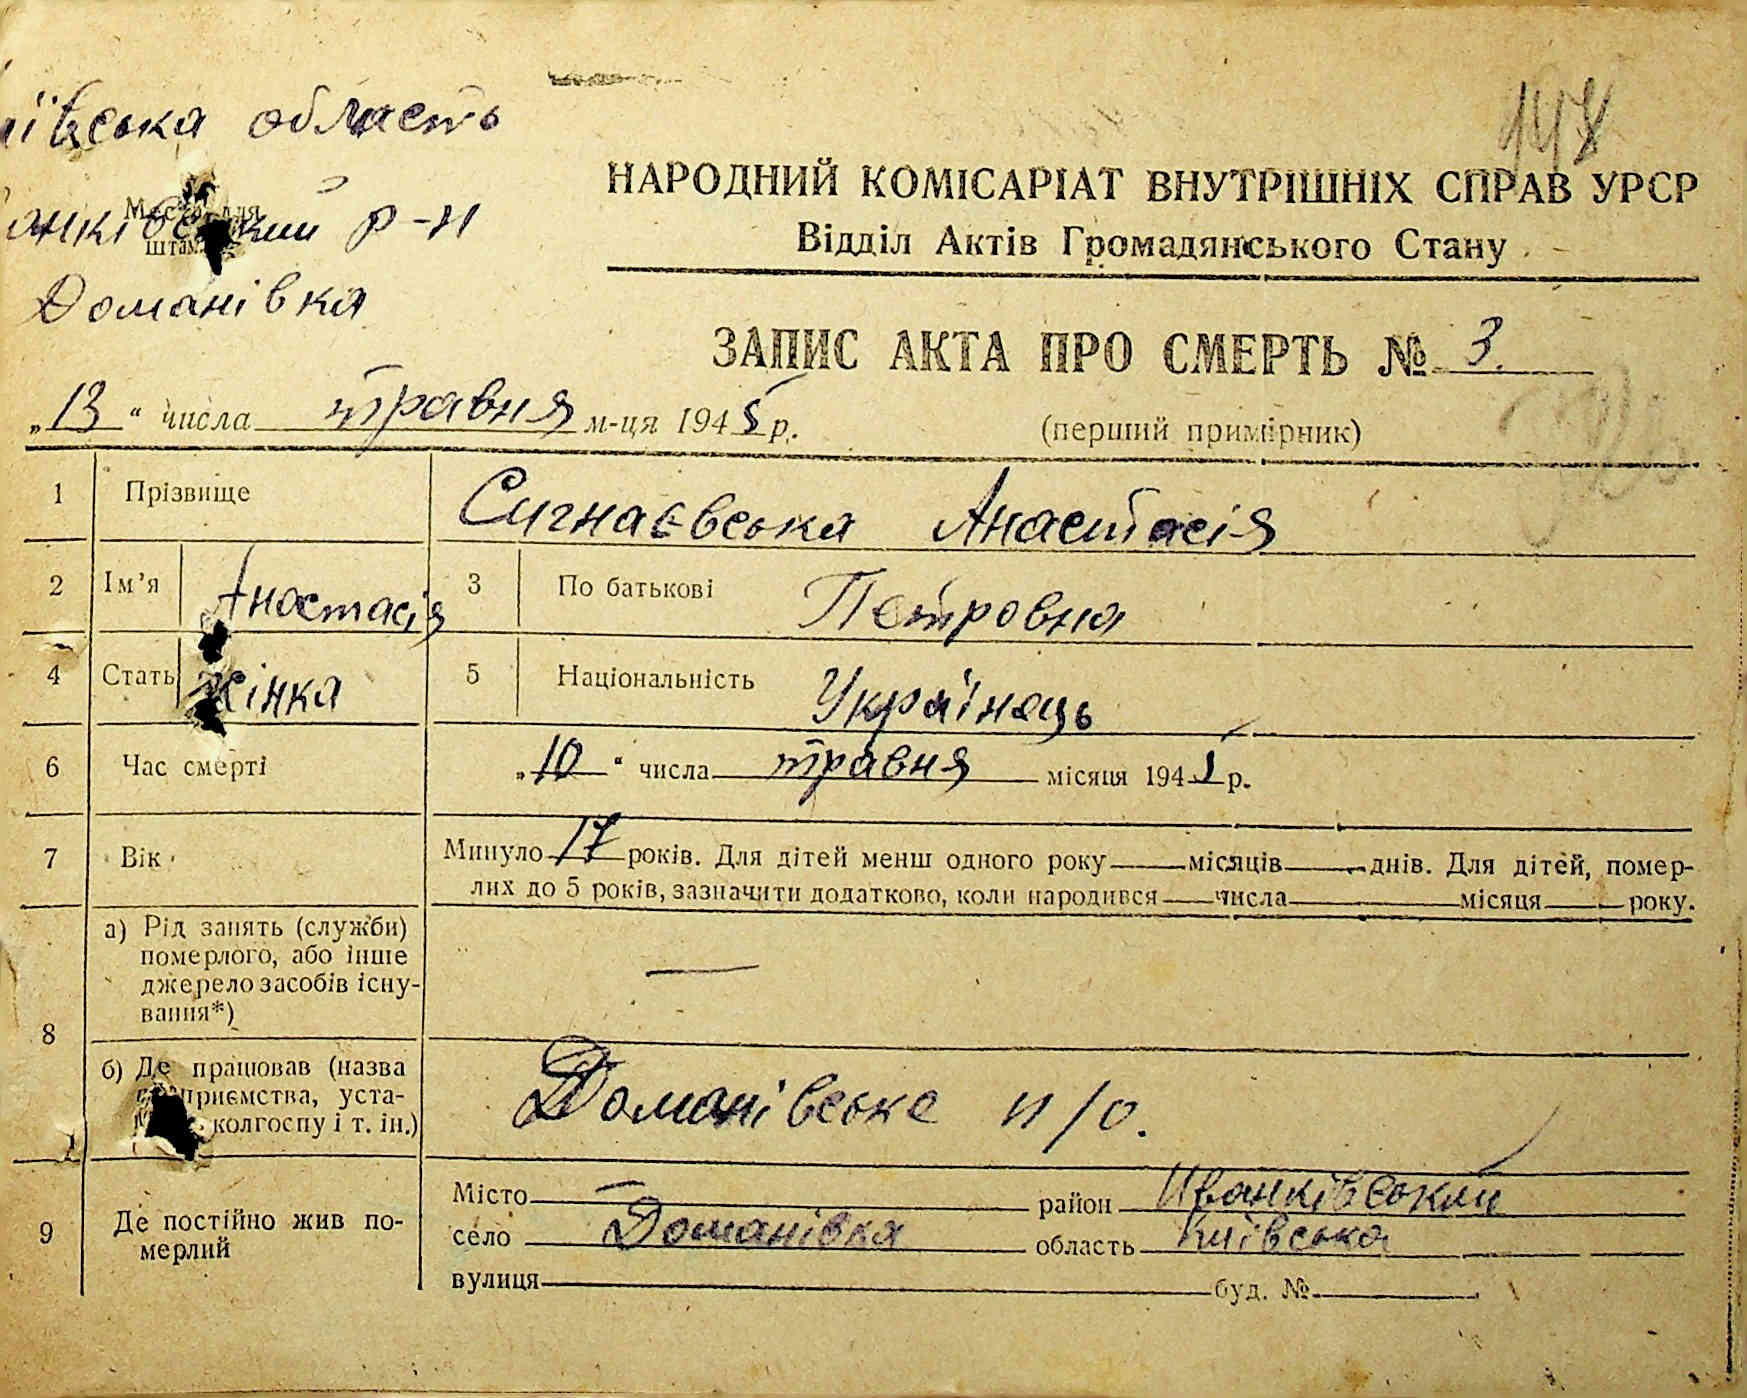 ївська область
Місце для
штам
анківський р-н
Доманівка
147
НАРОДНИЙ КОМІСАРІАТ ВНУТРІШНІХ СПРАВ УРСР
Відділ Актів Громадянського Стану
ЗАПИС АКТА ПРО СМЕРТЬ № 3.
„13“ числа травня м-ця 1945 р.
(перший примірник)
1 Прізвище Сигнаєвська Анастасія
2 Ім’я Анастасія 3 По батькові Петровна
4 Стать жінка 5 Національність Українець
6 Час смерті „10“ числа травня місяця 1945 р.
7 Вік Минуло 17 років. Для дітей менш одного року місяців днів. Для дітей, помер-
лих до 5 років, зазначити додатково, коли народився числа місяця року.
8 а) Рід занять (служби)
померлого, або інше
джерело засобів існу-
вання*)
—
б) Де працював (назва
приємства, уста-
колгоспу і т. ін.)
Доманівське п/о.
9 Де постійно жив по-
мерлий
Місто — район Иванківський
село Доманівка область Київська
вулиця буд. №